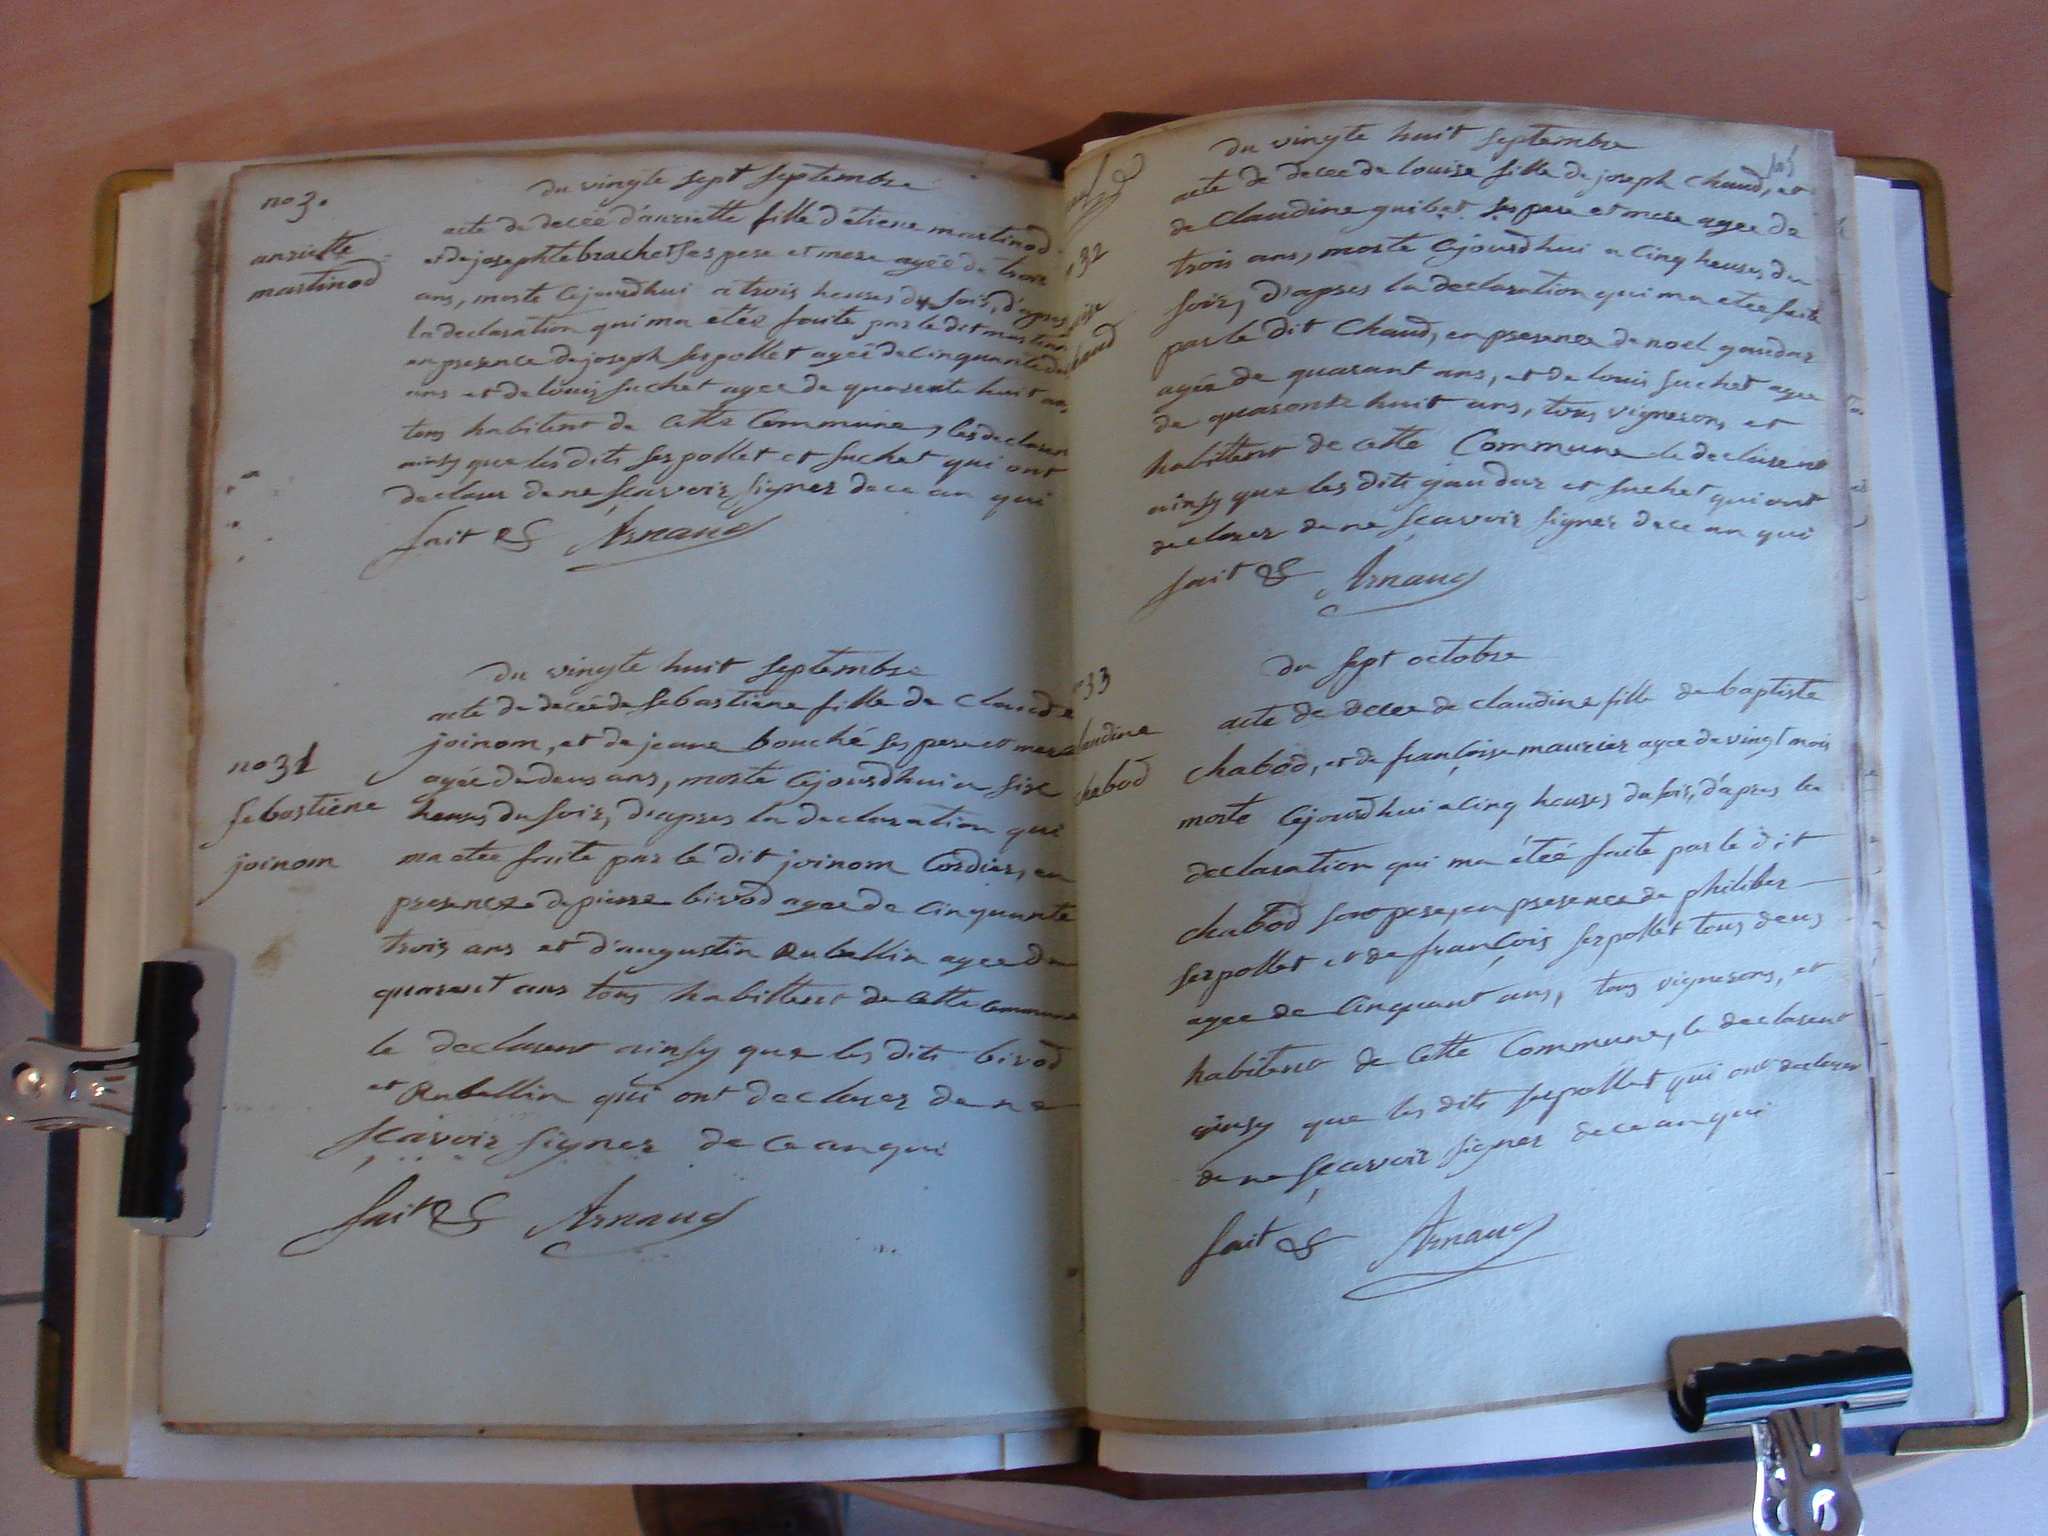 no 3.
anriette
martinod
du vingte sept septembre
acte de decée d'anriette fille d'etiene martinod
et de josephte brachet ses pere et mere ageé de trois
ans, morte cejourdhui a trois heures du soir, d'apres
la declaration qui ma eteé faite par le dit martinod
en presence de joseph serpollet ageé de cinquante deux
ans et de louis suchet agee de quarente huit ans
tous habitent de cette commune, les declarent
ainsy que les dits serpollet et suchet qui ont
declarer de ne sçavoir signer de ce an qui
fait & Arnaud
no 31
sebastiene
joinom
du vingte huit septembre
acte de deceé de sebastiene fille de claude
joinom, et de jeane bouché ses pere et mere
ageé de deus ans, morte cejourdhui a sixe
heures du soir, d'apres la declaration qui
ma etee faite par le dit joinom cordier, en
presence de pierre bivod agee de cinquante
trois ans et d'augustin Rubellin agee de
quarent ans tous habittent de cette commune
le declarent ainsy que les dits bivod
et Rubellin qui ont declarer de ne
sçavoir signer de ce an qui
fait & Arnaud
32
haud
du vingte huit septembre
acte de decee de louise fille de joseph chaud, et
de claudine guibet ses pere et mere agee de
trois ans, morte cejourdhui a cinq heures du
soir, d'apres la declaration qui ma etee faite
par le dit chaud, en presence de noel gaudar
ageé de quarant ans, et de louis suchet agee
de quarante huit ans, tous vignerons et
habittent de cette commune le declarent
ainsy que les dits gaudar et suchet qui ont
declarer de ne sçavoir signer de ce an qui
fait & Arnaud
no 33
claudine
chabod
du sept octobre
acte de decee de claudine fille de baptiste
chabod, et de françoise maurier agee de vingt mois
morte cejourdhui a cinq heures du soir, d'apres la
declaration qui ma éteé faite par le dit
chabod son pere, en presence de philiber
serpollet et de françois serpollet tous deus
agee de cinquant ans, tous vignerons, et
habitent de cette commune, le declarent
ainsy que les dits serpollet qui ont declarer
de ne sçavoir signer de ce an qui
fait & Arnaud